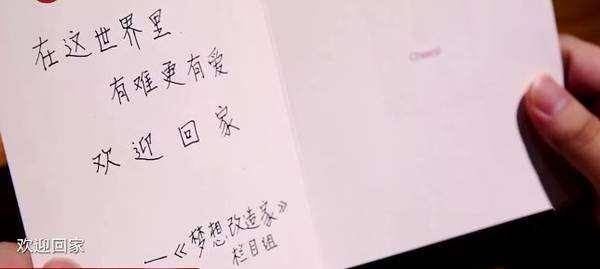 在这世界里
有难更有爱
欢迎回家
—《梦想改造家》
栏目组
Cheers!
欢迎回家